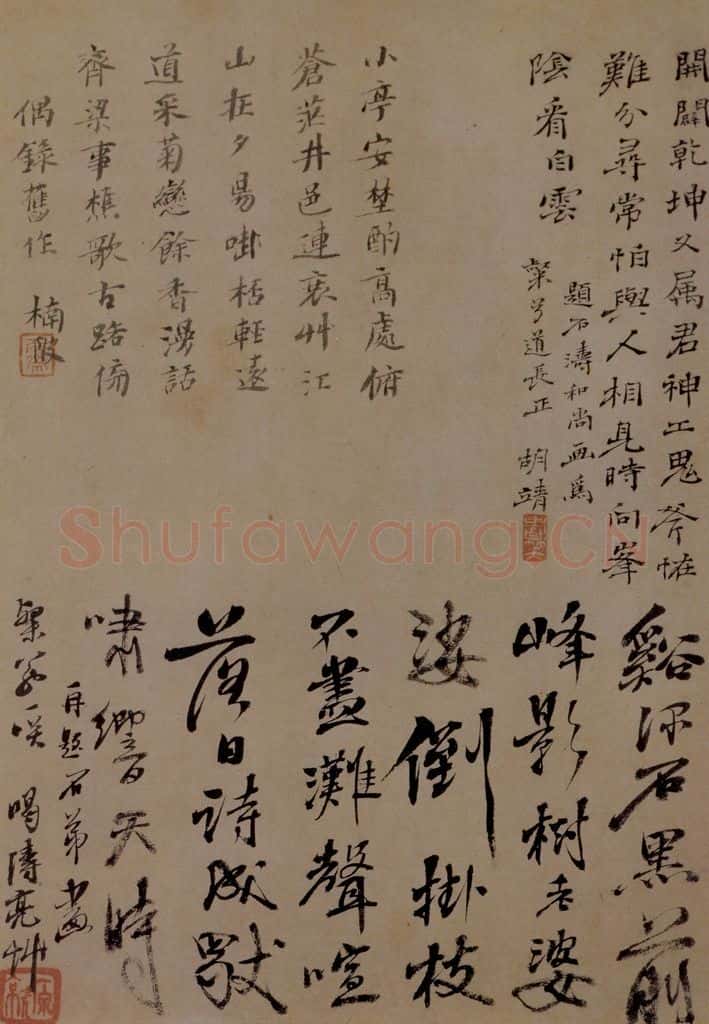 開闢乾坤又属君神工鬼斧恠
難分尋常怕與人相見時向峯
陰看白雲
題石濤和尚画爲
粲兮道長正 胡靖
小亭安埜酌高處俯
蒼茫井邑連衰艸江
山在夕昜啣桮輕遠
道采菊戀餘香漫話
齊梁事樵歌古路傍
偶錄舊作 楠
Shufawang.CN
谿深石黒前
峰影樹老婆
娑倒掛枝
不盡灘聲喧
落日詩成猒
嘯響天時
再題石弟畫
粲兮咲 喝濤亮艸